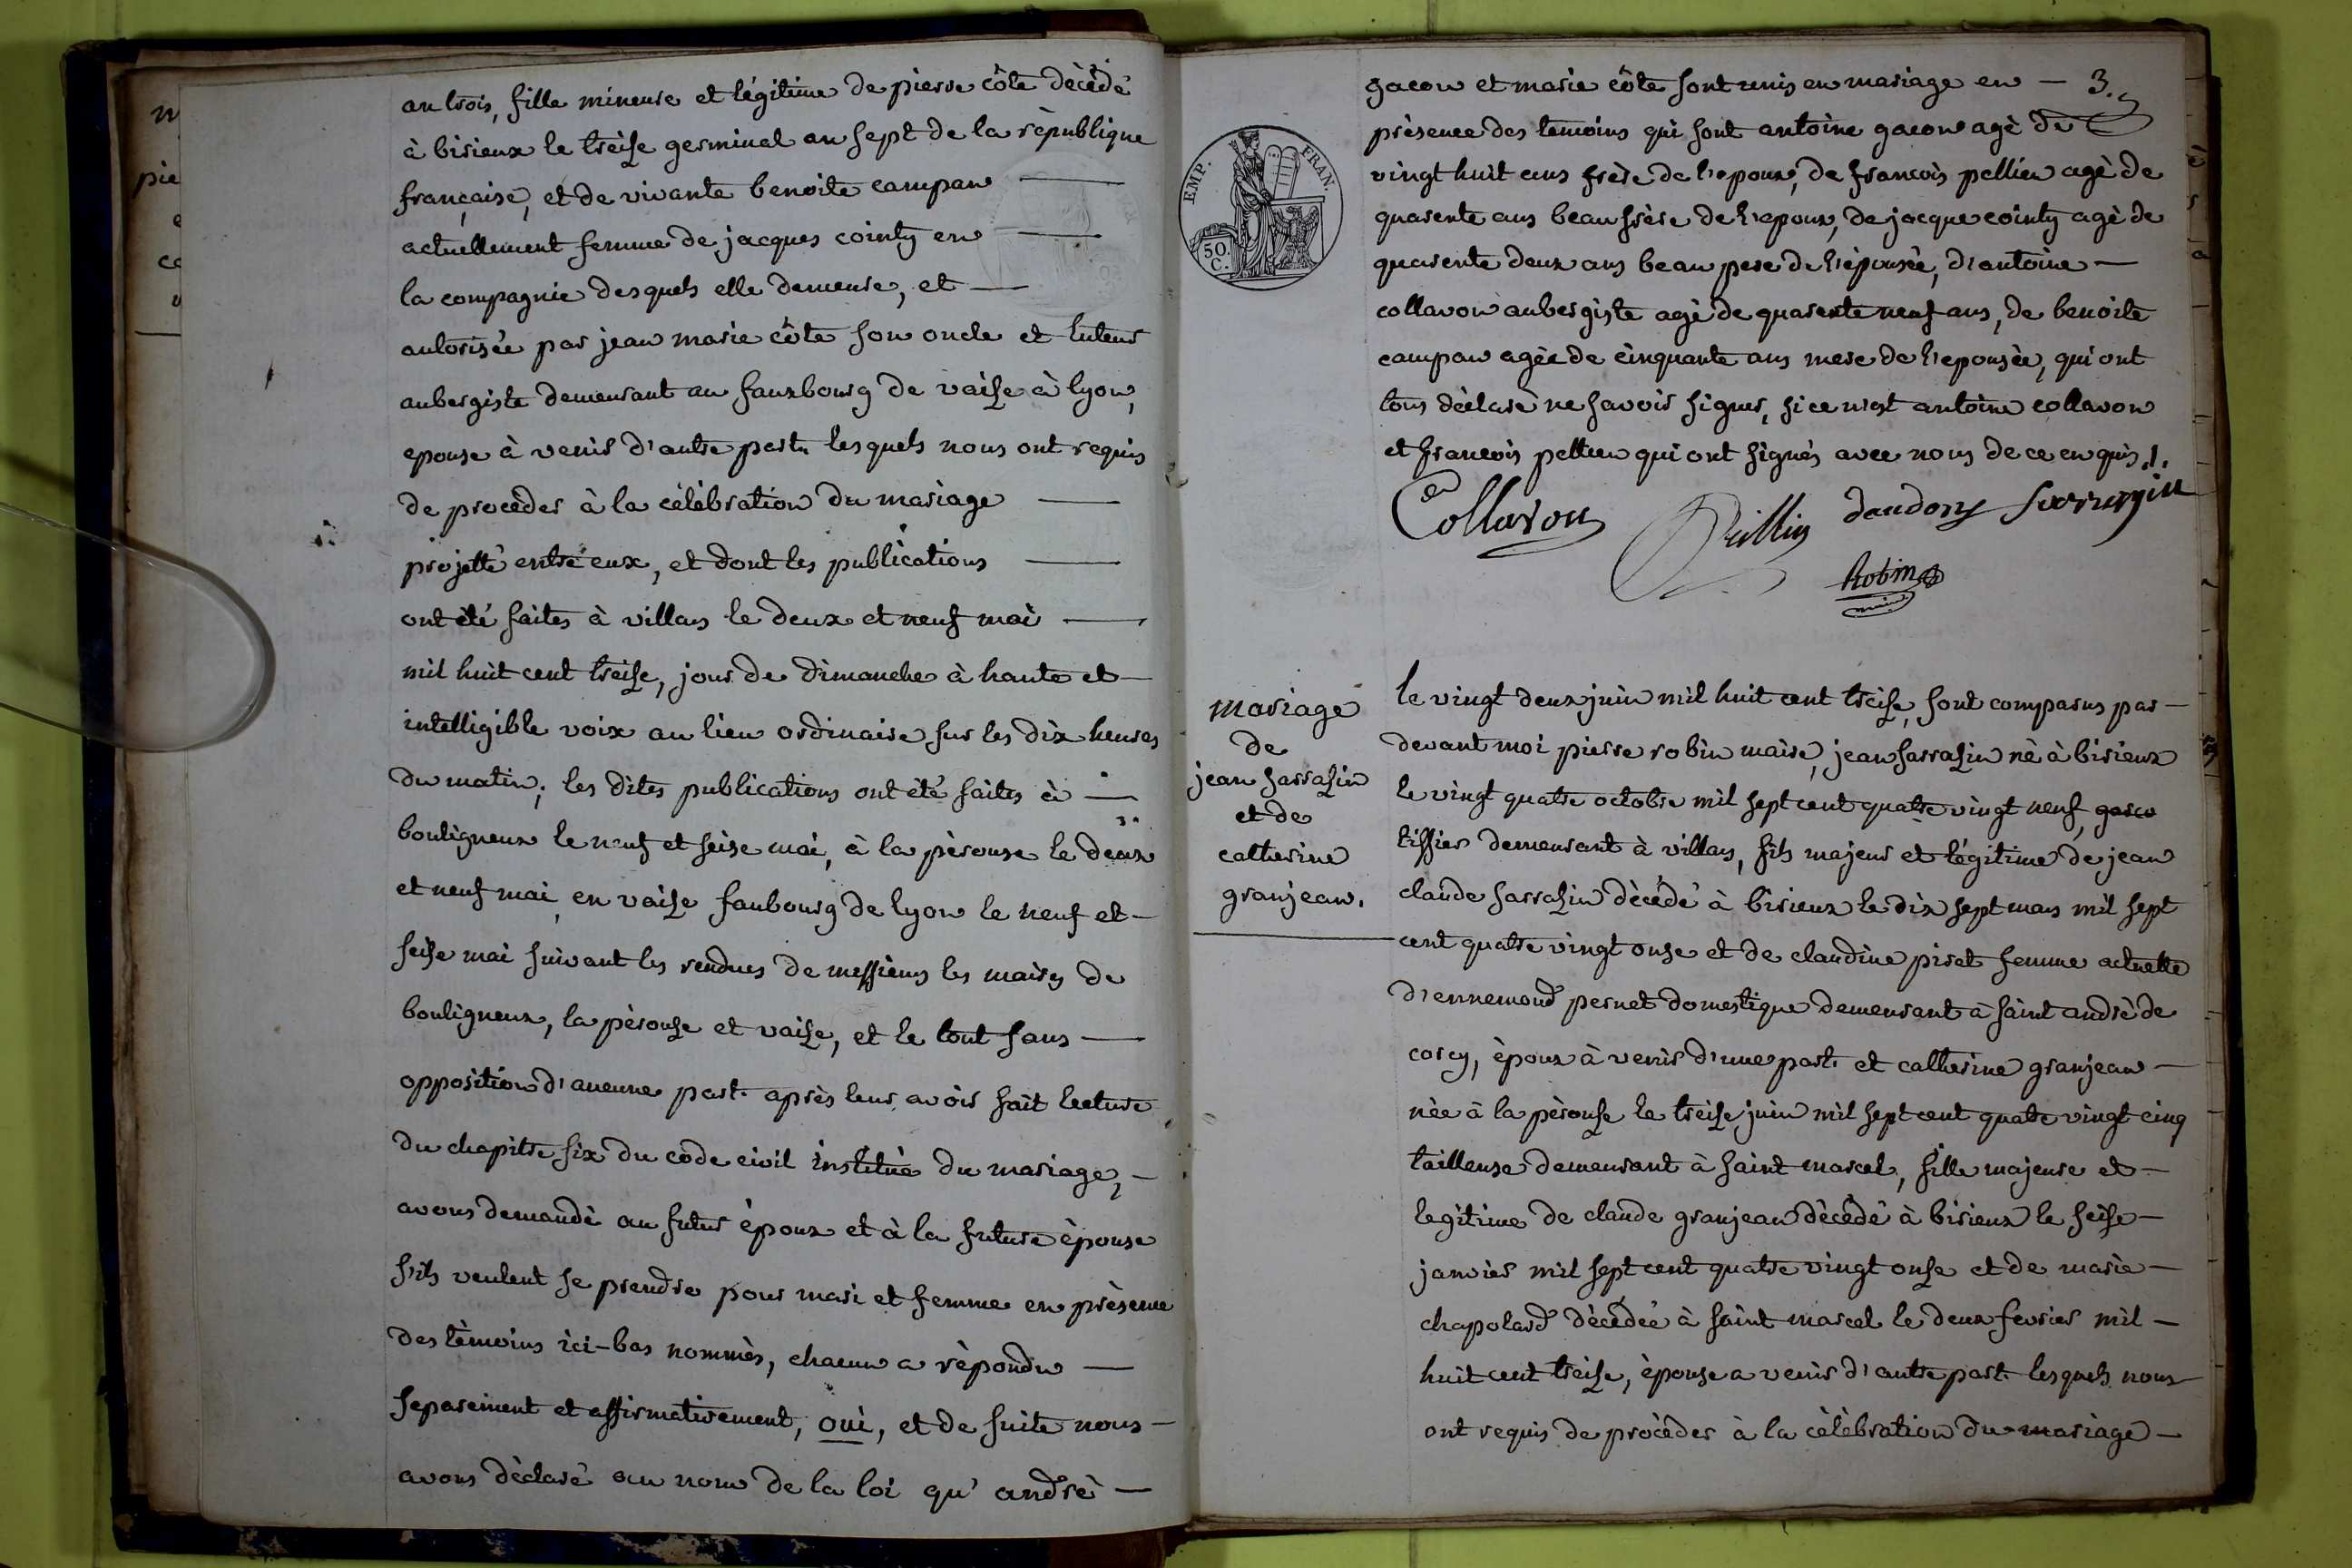 an trois, fille mineure et légitime de pierre côte dècédé
à birieux le treise germinal an sept de la rèpublique
française, et de vivante benoite campan —
actuellement femme de jacques cointy en —
la compagnie desquels elle demeure, et —
autorisée par jean marie côte son oncle et tuteur
aubergiste demeurant au fauxbourg de vaise à lyon,
epouse à venir d'autre part. lesquels nous ont requis
de procèder à la célébration du mariage —
projetté entre eux, et dont les publications —
ont été faites à villars le deux et neuf mai —
mil huit cent treise, jour de dimanche à haute et —
intelligible voix au lieu ordinaire sur les dix heures
du matin; les dites publications ont été faites à —
bouligneux le neuf et seise mai, à la pèrouse le deux
et neuf mai, en vaise faubourg de lyon le neuf et —
seise mai suivant les rendues de messieurs les maires de
bouligneux, la pèrouse et vaise, et le tout sans —
opposition d'aucune part. après leur avoir fait lecture
du chapitre six du code civil institué du mariage, —
avons demandè au futur époux et à la future èpouse
s'ils veulent se prendre pour mari et femme en prèsence
des tèmoins ici-bas nommès, chacun a rèpondu —
separement et affirmativement, oui, et de suite nous —
avons dèclaré au nom de la loi qu'andrè —
gacon et marie côte sont unis en mariage en — 3.
prèsence des temoins qui sont antoine gacon agè de
vingt huit ans frère de l'epoux, de francois pellien agè de
quarente ans beau frère de l'epoux, de jacque cointy agè de
quarente deux ans beau pere de l'épousée, d'antoine —
collavon aubergiste agè de quarente neuf ans, de benoite
campan agèe de cinquante ans mere de l'epousèe, qui ont
tous dèclarè ne savoir signer, si ce n'est antoine collavon
et francois pellien qui ont signés avec nous de ce enquis.
EMP. FRAN.
50.
C.
Collavon
daudon
Robin
maire
mariage
de
jean sarrasin
et de
catherine
granjean.
le vingt deux juin mil huit cent treise, sont comparus par —
devant moi pierre robin maire, jean sarrasin nè à birieux
le vingt quatre octobre mil sept cent quatre vingt neuf,
tissier demeurant à villars, fils majeur et légitime de jean
claude sarrasin dècédé à birieux le dix sept mars mil sept
cent quatre vingt onse et de claudine piret femme actuelle
d'ennemond pernet domestique demeurant à saint andrè de
corcy, èpoux à venir d'une part. et catherine granjean —
nèe à la pèrouse le treise juin mil sept cent quatre vingt cinq
tailleuse demeurant à saint marcel, fille majeure et —
legitime de claude granjean dècédé à birieux le seise —
janvier mil sept cent quatre vingt onse et de marie —
chapolard dècédée à saint marcel le deux fevrier mil —
huit cent treise, èpouse a venir d'autre part. lesquels nous
ont requis de procèder à la cèlèbration du mariage —